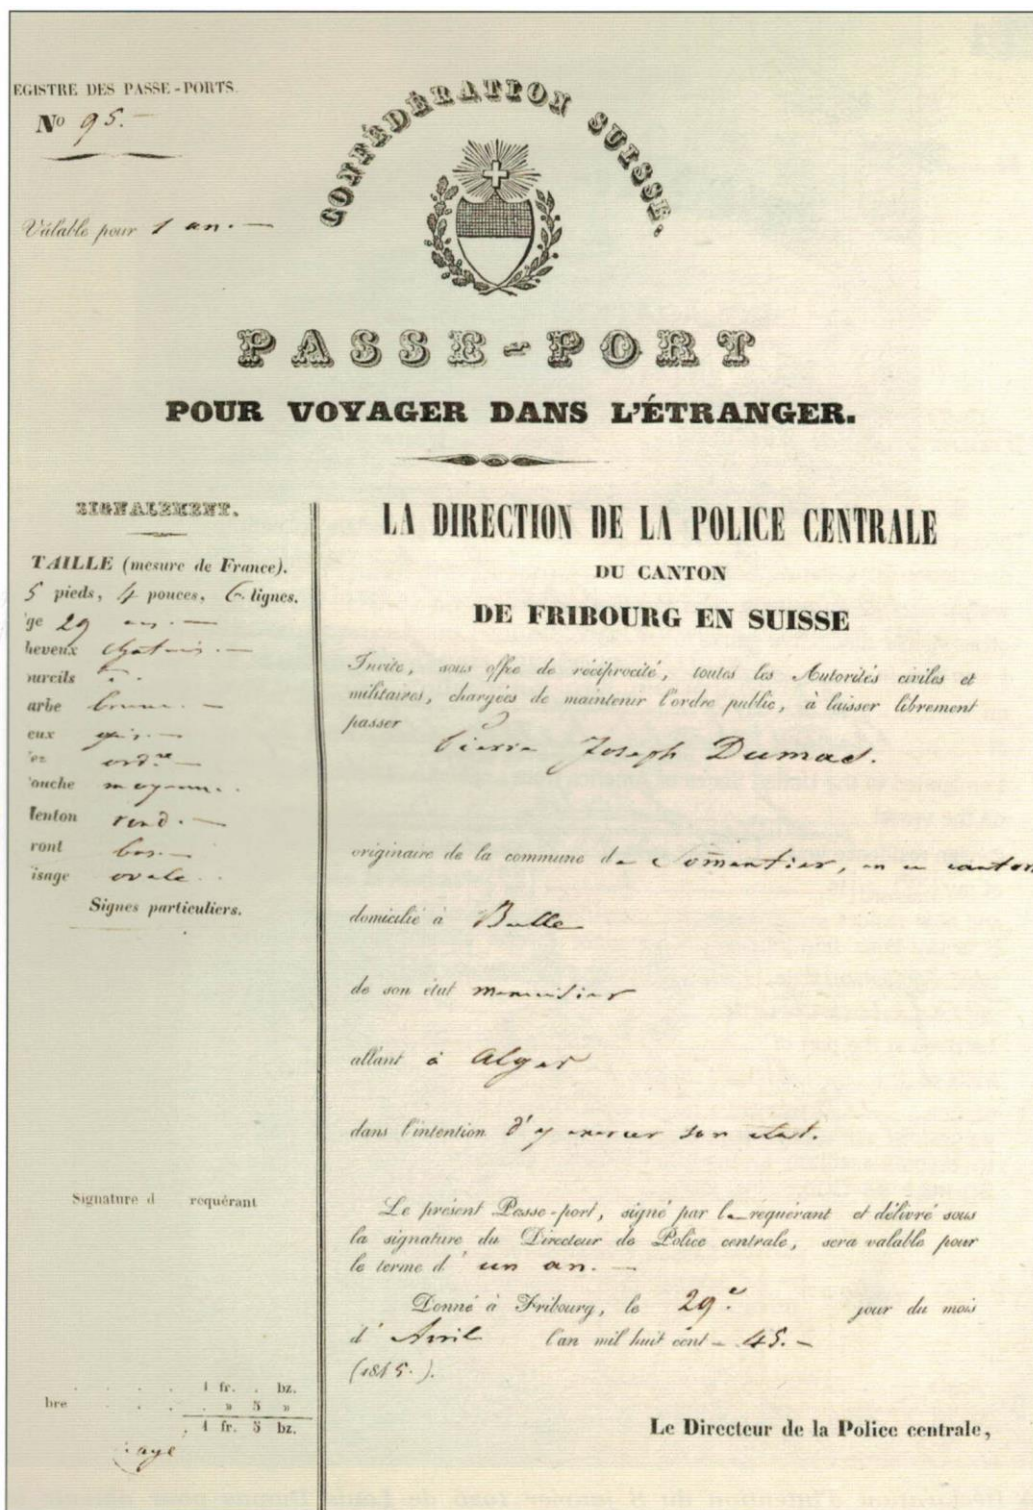 EGISTRE DES PASSE-PORTS.
No 95.-
Valable pour 1 an.-
CONFÉDÉRATION SUISSE.
PASSE-PORT
POUR VOYAGER DANS L'ÉTRANGER.
SIGNALEMENT.
TAILLE (mesure de France).
5 pieds, 4 pouces, 6 lignes.
ge 29 ans.-
heveux chatains.-
ourcils
arbe brune.-
eux gris.-
ez ord.re
ouche moyenne.
enton rond.-
ront bas.-
isage ovale.
Signes particuliers.
Signature d requérant
1 fr. . bz.
bre . . . » 5 »
1 fr. 5 bz.
LA DIRECTION DE LA POLICE CENTRALE
DU CANTON
DE FRIBOURG EN SUISSE
Invite, sous offre de réciprocité, toutes les Autorités civiles et
militaires, chargées de maintenir l'ordre public, à laisser librement
passer
Pierre Joseph Dumas.
originaire de la commune de Sommentier, en ce canton
domicilié à Bulle
de son état menuisier
allant à Alger
dans l'intention d'y exercer son état.
Le présent Passe-port, signé par le requérant et délivré sous
la signature du Directeur de Police centrale, sera valable pour
le terme d'un an.-
Donné à Fribourg, le 29e. jour du mois
d'Avril l'an mil huit cent - 45.-
(1845.).
Le Directeur de la Police centrale,